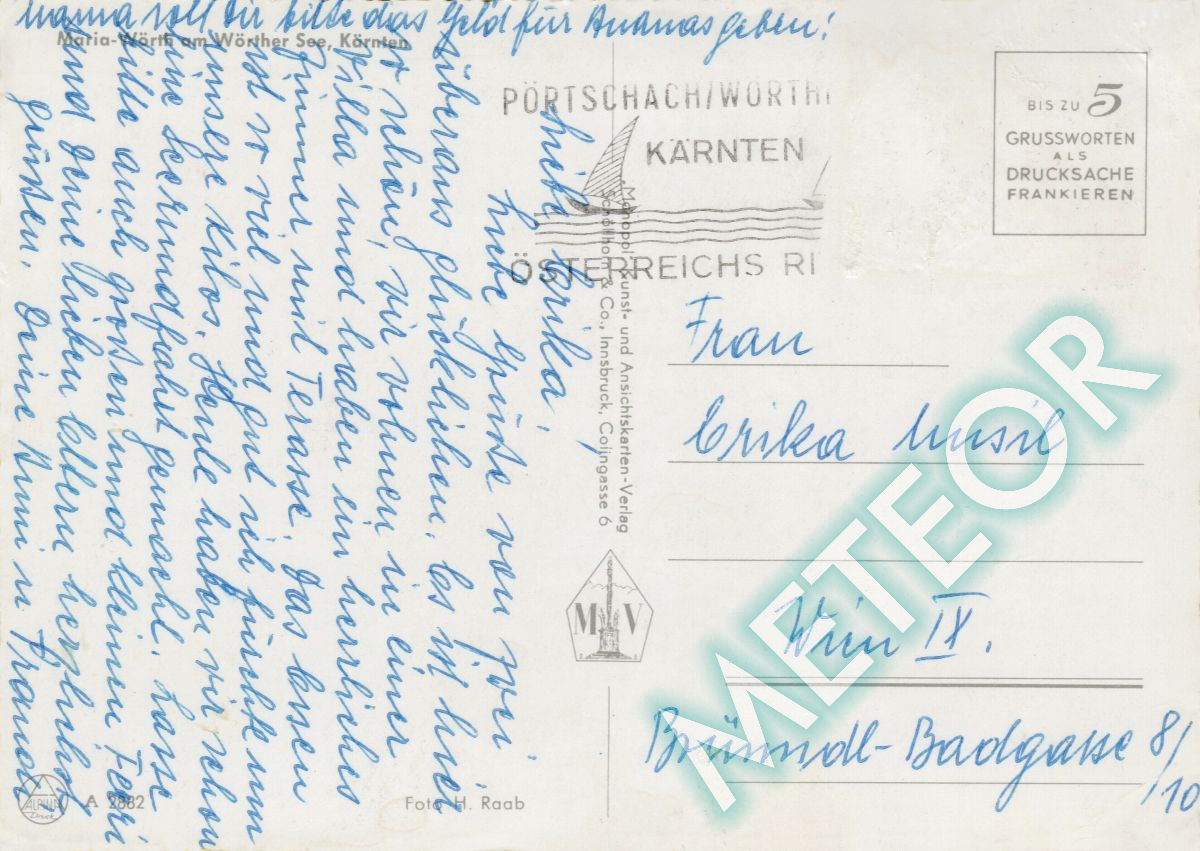 Mama soll Dir bitte das Geld für Ananas geben!
Maria-Wörth am Wörther See, Kärnten
Liebe Erika!
Liebe Grüsse von zwei
überaus glücklichen. Es ist hier
so schön, wir wohnen in einer
Villa und haben ein herrliches
Zimmer mit Terasse. Das Essen
ist so viel und gut ich fürchte um
unsere Kilos. Heute haben wir schon
eine Seerundfahrt gemacht. Lasse
bitte auch grossen und kleinen Ferri
und Deine lieben Eltern herzlichst
grüssen. Deine Anni u Franzi
PÖRTSCHACH/WÖRTH
KÄRNTEN
ÖSTERREICHS RI
BIS ZU 5
GRUSSWORTEN
ALS
DRUCKSACHE
FRANKIEREN
„Monopol" Kunst- und Ansichtskarten-Verlag
Schöllhorn & Co., Innsbruck, Colingasse 6
M V
Frau
Erika Musil
Wien IX.
Bründl-Badgasse 8/
10
ALPINA
Druck
A 2882
Foto H. Raab
METEOR